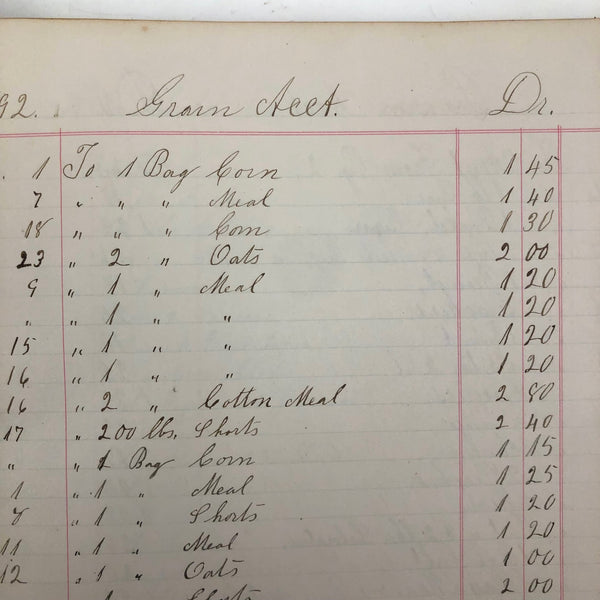 92. Grain Acct. Dr.
1 To 1 Bag Corn 1 45
7 " " " Meal 1 40
18 " " " Corn 1 30
23 " 2 " Oats 2 00
9 " 1 " Meal 1 20
" " 1 " " 1 20
15 " 1 " " 1 20
16 " 1 " " 1 20
16 " 2 " Cotton Meal 2 80
17 " 200 lbs. Shorts 2 40
" " 1 Bag Corn 1 15
1 " 1 " Meal 1 25
8 " 1 " Shorts 1 20
11 " 1 " Meal 1 20
12 " 1 " Oats 1 00
Shorts 2 00